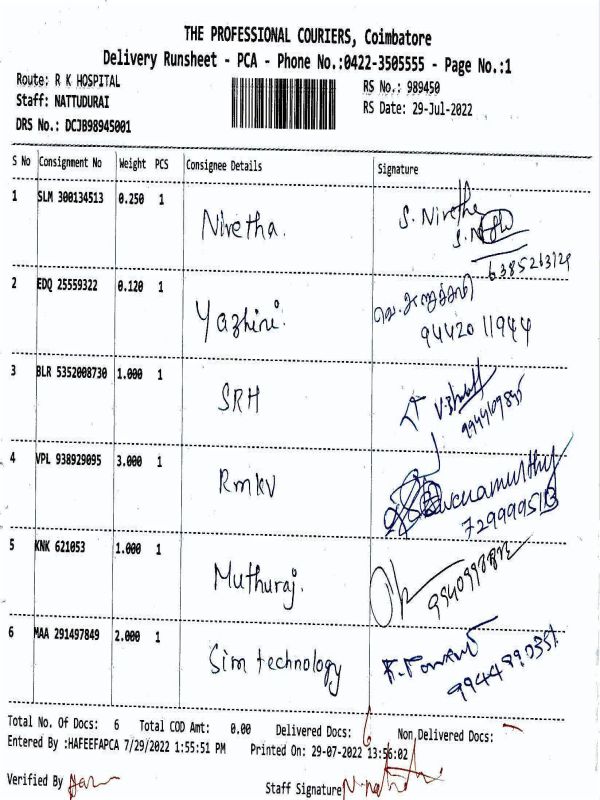 THE PROFESSIONAL COURIERS, Coimbatore
Delivery Runsheet - PCA - Phone No.:0422-3505555 - Page No.:1
Route: R K HOSPITAL
RS No.: 989450
Staff: NATTUDURAI
RS Date: 29-Jul-2022
DRS No.: DCJB98945001
S No Consignment No Weight PCS Consignee Details Signature
1 SLM 300134513 0.250 1 Nivetha. S. Nivetha
6385263129
2 EDQ 25559322 0.120 1 Yazhini.
94420 11944
3 BLR 5352008730 1.000 1 SRH
4 VPL 938929095 3.000 1 RmKV
7299995113
5 KNK 621053 1.000 1 Muthuraj.
6 MAA 291497849 2.000 1 Sim technology
Total No. Of Docs: 6 Total COD Amt: 0.00 Delivered Docs: 6 Non Delivered Docs: -
Entered By :HAFEEFAPCA 7/29/2022 1:55:51 PM Printed On: 29-07-2022 13:56:02
Verified By
Staff Signature